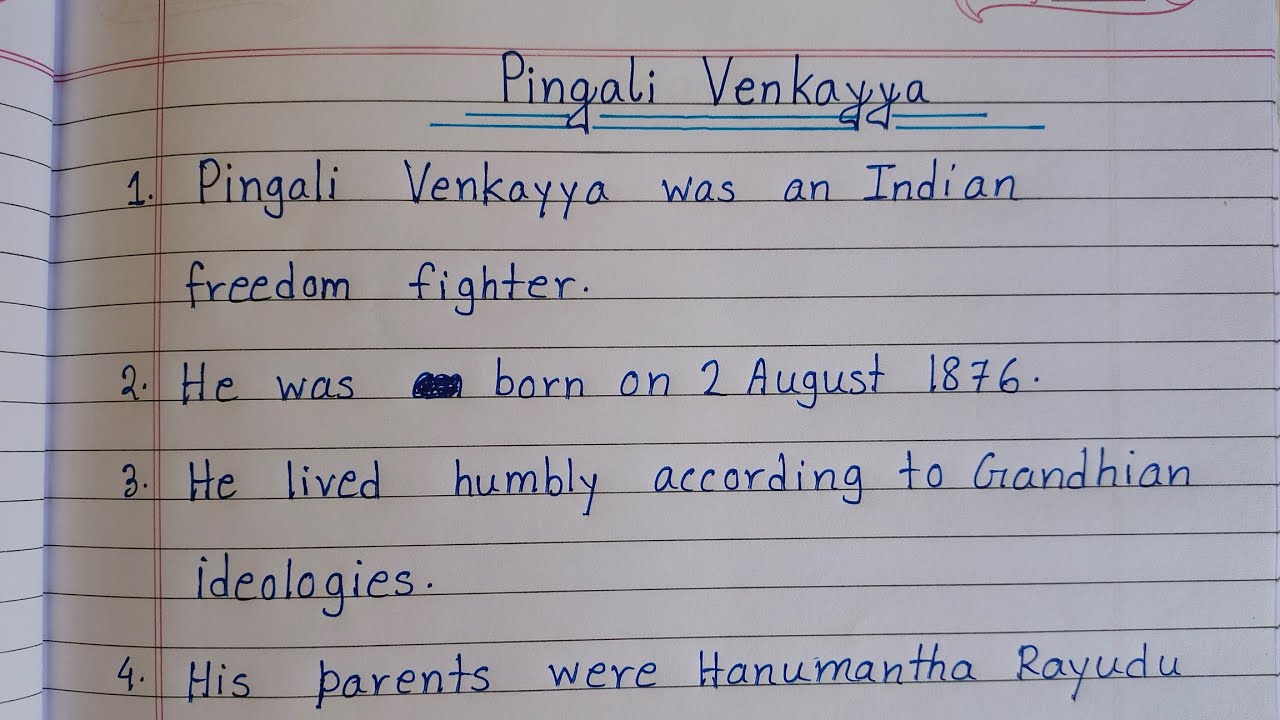 Pingali Venkayya
1. Pingali Venkayya was an Indian
freedom fighter.
2. He was born on 2 August 1876.
3. He lived humbly according to Gandhian
ideologies.
4. His parents were Hanumantha Rayudu